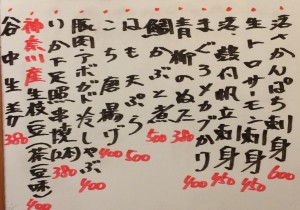 活さかんぱち刺身 600
生トロサーモン刺身 450
活殻付帆立刺身 450
まぐろメカブかけ 400
青柳のぬた 380
鯛かぶと煮 500
はも天ぷら 500
こち唐揚げ 400
豚肉アボガド冷しゃぶ 400
いか下足照串焼(2本) 380
神奈川産生枝豆(茶豆味) 400
谷中生姜 380